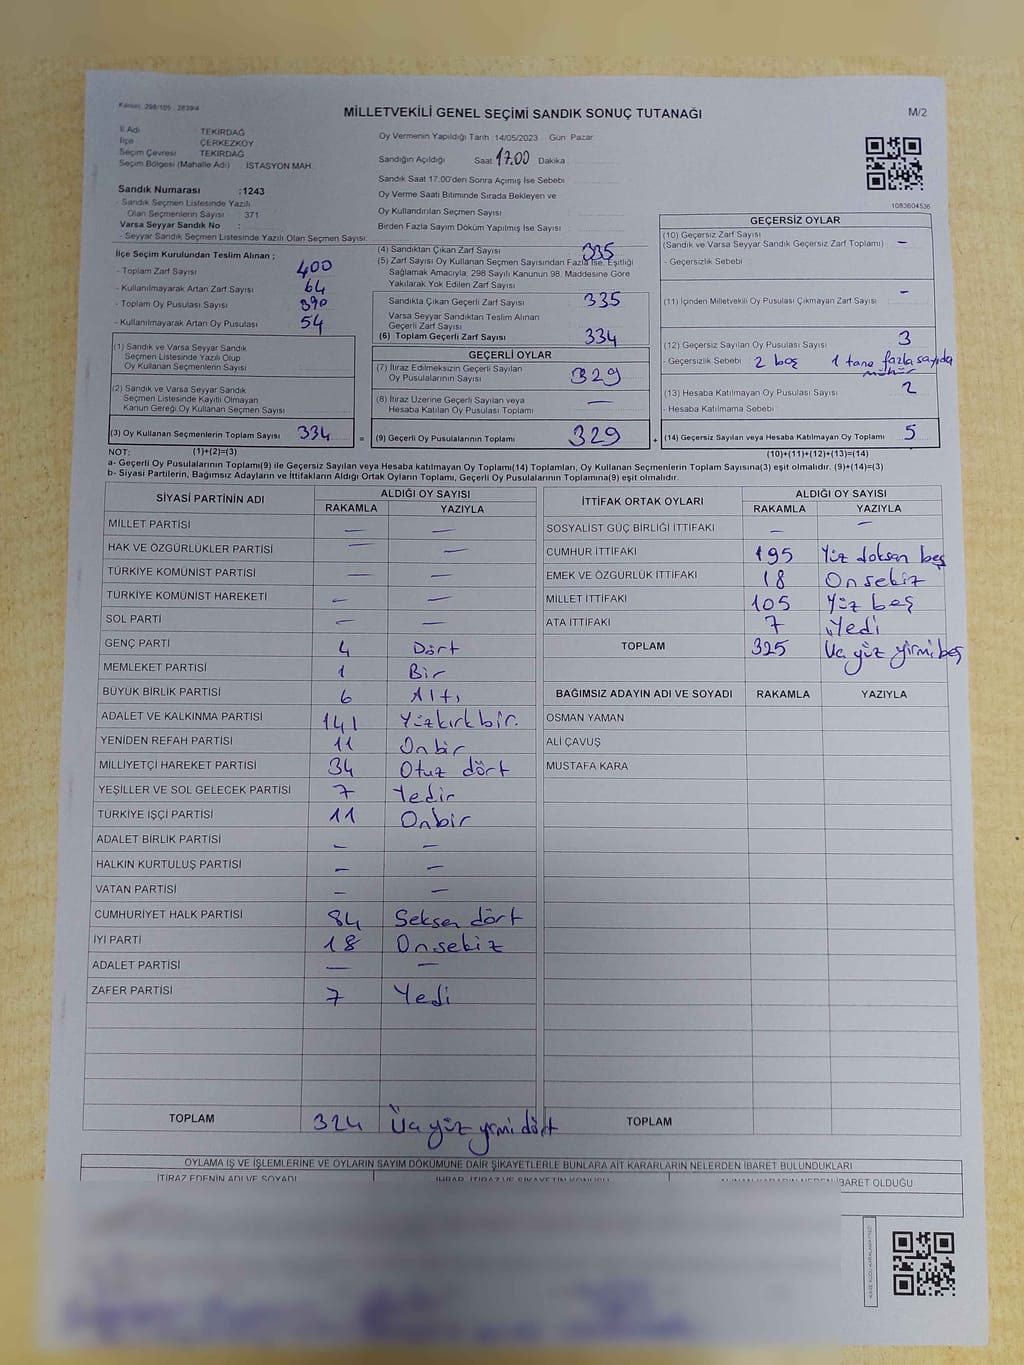 Kanun: 298/105 , 2839/4
MİLLETVEKİLİ GENEL SEÇİMİ SANDIK SONUÇ TUTANAĞI
M/2
İl Adı TEKİRDAĞ
İlçe ÇERKEZKÖY
Seçim Çevresi TEKİRDAĞ
Seçim Bölgesi (Mahalle Adı) : İSTASYON MAH.
Oy Vermenin Yapıldığı Tarih :14/05/2023 Gün: Pazar
Sandığın Açıldığı Saat 17.00 Dakika
Sandık Saat 17:00'den Sonra Açımış İse Sebebi
Oy Verme Saati Bitiminde Sırada Bekleyen ve
Oy Kullandırılan Seçmen Sayısı
Birden Fazla Sayım Döküm Yapılmış İse Sayısı
1083604536
Sandık Numarası :1243
- Sandık Seçmen Listesinde Yazılı
Olan Seçmenlerin Sayısı : 371
Varsa Seyyar Sandık No :
- Seyyar Sandık Seçmen Listesinde Yazılı Olan Seçmen Sayısı:
İlçe Seçim Kurulundan Teslim Alınan ;
- Toplam Zarf Sayısı 400
- Kullanılmayarak Artan Zarf Sayısı 64
- Toplam Oy Pusulası Sayısı 390
- Kullanılmayarak Artan Oy Pusulası 54
(1) Sandık ve Varsa Seyyar Sandık
Seçmen Listesinde Yazılı Olup
Oy Kullanan Seçmenlerin Sayısı
(2) Sandık ve Varsa Seyyar Sandık
Seçmen Listesinde Kayıtlı Olmayan
Kanun Gereği Oy Kullanan Seçmen Sayısı
(3) Oy Kullanan Seçmenlerin Toplam Sayısı 334
(4) Sandıktan Çıkan Zarf Sayısı 335
(5) Zarf Sayısı Oy Kullanan Seçmen Sayısından Fazla İse, Eşitliği
Sağlamak Amacıyla, 298 Sayılı Kanunun 98. Maddesine Göre
Yakılarak Yok Edilen Zarf Sayısı
Sandıkta Çıkan Geçerli Zarf Sayısı 335
Varsa Seyyar Sandıktan Teslim Alınan
Geçerli Zarf Sayısı
(6) Toplam Geçerli Zarf Sayısı 334
GEÇERLİ OYLAR
(7) İtiraz Edilmeksizin Geçerli Sayılan
Oy Pusulalarının Sayısı 329
(8) İtiraz Üzerine Geçerli Sayılan veya
Hesaba Katılan Oy Pusulası Toplamı —
= (9) Geçerli Oy Pusulalarının Toplamı 329
GEÇERSİZ OYLAR
(10) Geçersiz Zarf Sayısı
(Sandık ve Varsa Seyyar Sandık Geçersiz Zarf Toplamı) -
- Geçersizlik Sebebi :
(11) İçinden Milletvekili Oy Pusulası Çıkmayan Zarf Sayısı -
(12) Geçersiz Sayılan Oy Pusulası Sayısı 3
- Geçersizlik Sebebi : 2 boş 1 tane fazla sayıda
mühür
(13) Hesaba Katılmayan Oy Pusulası Sayısı 2
- Hesaba Katılmama Sebebi :
+ (14) Geçersiz Sayılan veya Hesaba Katılmayan Oy Toplamı 5
NOT: (1)+(2)=(3) (10)+(11)+(12)+(13)=(14)
a- Geçerli Oy Pusulalarının Toplamı(9) ile Geçersiz Sayılan veya Hesaba katılmayan Oy Toplamı(14) Toplamları, Oy Kullanan Seçmenlerin Toplam Sayısına(3) eşit olmalıdır. (9)+(14)=(3)
b- Siyasi Partilerin, Bağımsız Adayların ve İttifakların Aldığı Ortak Oyların Toplamı, Geçerli Oy Pusulalarının Toplamına(9) eşit olmalıdır.
SİYASİ PARTİNİN ADI ALDIĞI OY SAYISI
RAKAMLA YAZIYLA
MİLLET PARTİSİ — —
HAK VE ÖZGÜRLÜKLER PARTİSİ — —
TÜRKİYE KOMÜNİST PARTİSİ — —
TÜRKİYE KOMÜNİST HAREKETİ — —
SOL PARTİ — —
GENÇ PARTİ 4 Dört
MEMLEKET PARTİSİ 1 Bir
BÜYÜK BİRLİK PARTİSİ 6 Altı
ADALET VE KALKINMA PARTİSİ 141 Yüzkırkbir.
YENİDEN REFAH PARTİSİ 11 Onbir
MİLLİYETÇİ HAREKET PARTİSİ 34 Otuz dört
YEŞİLLER VE SOL GELECEK PARTİSİ 7 Yedir
TÜRKİYE İŞÇİ PARTİSİ 11 Onbir
ADALET BİRLİK PARTİSİ — —
HALKIN KURTULUŞ PARTİSİ — —
VATAN PARTİSİ — —
CUMHURİYET HALK PARTİSİ 84 Seksen dört
İYİ PARTİ 18 Onsekiz
ADALET PARTİSİ — —
ZAFER PARTİSİ 7 Yedi
TOPLAM 324 Üç yüz yirmi dört
İTTİFAK ORTAK OYLARI ALDIĞI OY SAYISI
RAKAMLA YAZIYLA
SOSYALİST GÜÇ BİRLİĞİ İTTİFAKI — —
CUMHUR İTTİFAKI 195 Yüz doksan beş
EMEK VE ÖZGÜRLÜK İTTİFAKI 18 Onsekiz
MİLLET İTTİFAKI 105 Yüz beş
ATA İTTİFAKI 7 Yedi
TOPLAM 325 Üç yüz yirmi beş
BAĞIMSIZ ADAYIN ADI VE SOYADI RAKAMLA YAZIYLA
OSMAN YAMAN
ALİ ÇAVUŞ
MUSTAFA KARA
TOPLAM
OYLAMA İŞ VE İŞLEMLERİNE VE OYLARIN SAYIM DÖKÜMÜNE DAİR ŞİKAYETLERLE BUNLARA AİT KARARLARIN NELERDEN İBARET BULUNDUKLARI
İTİRAZ EDENİN ADI VE SOYADI İHBAR, İTİRAZ VE ŞİKAYETİN KONUSU ALINAN KARARIN NEDEN İBARET OLDUĞU